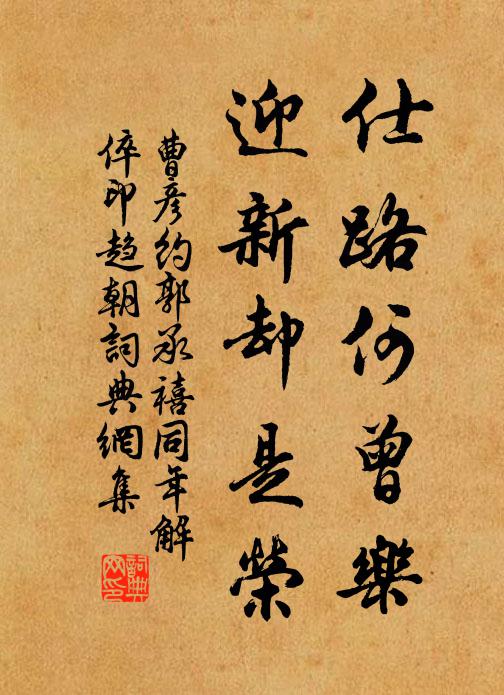 仕路何曾樂
迎新却是榮
曹彦約郭承禧同年解
倅印趨朝詞典網集
詞典網印